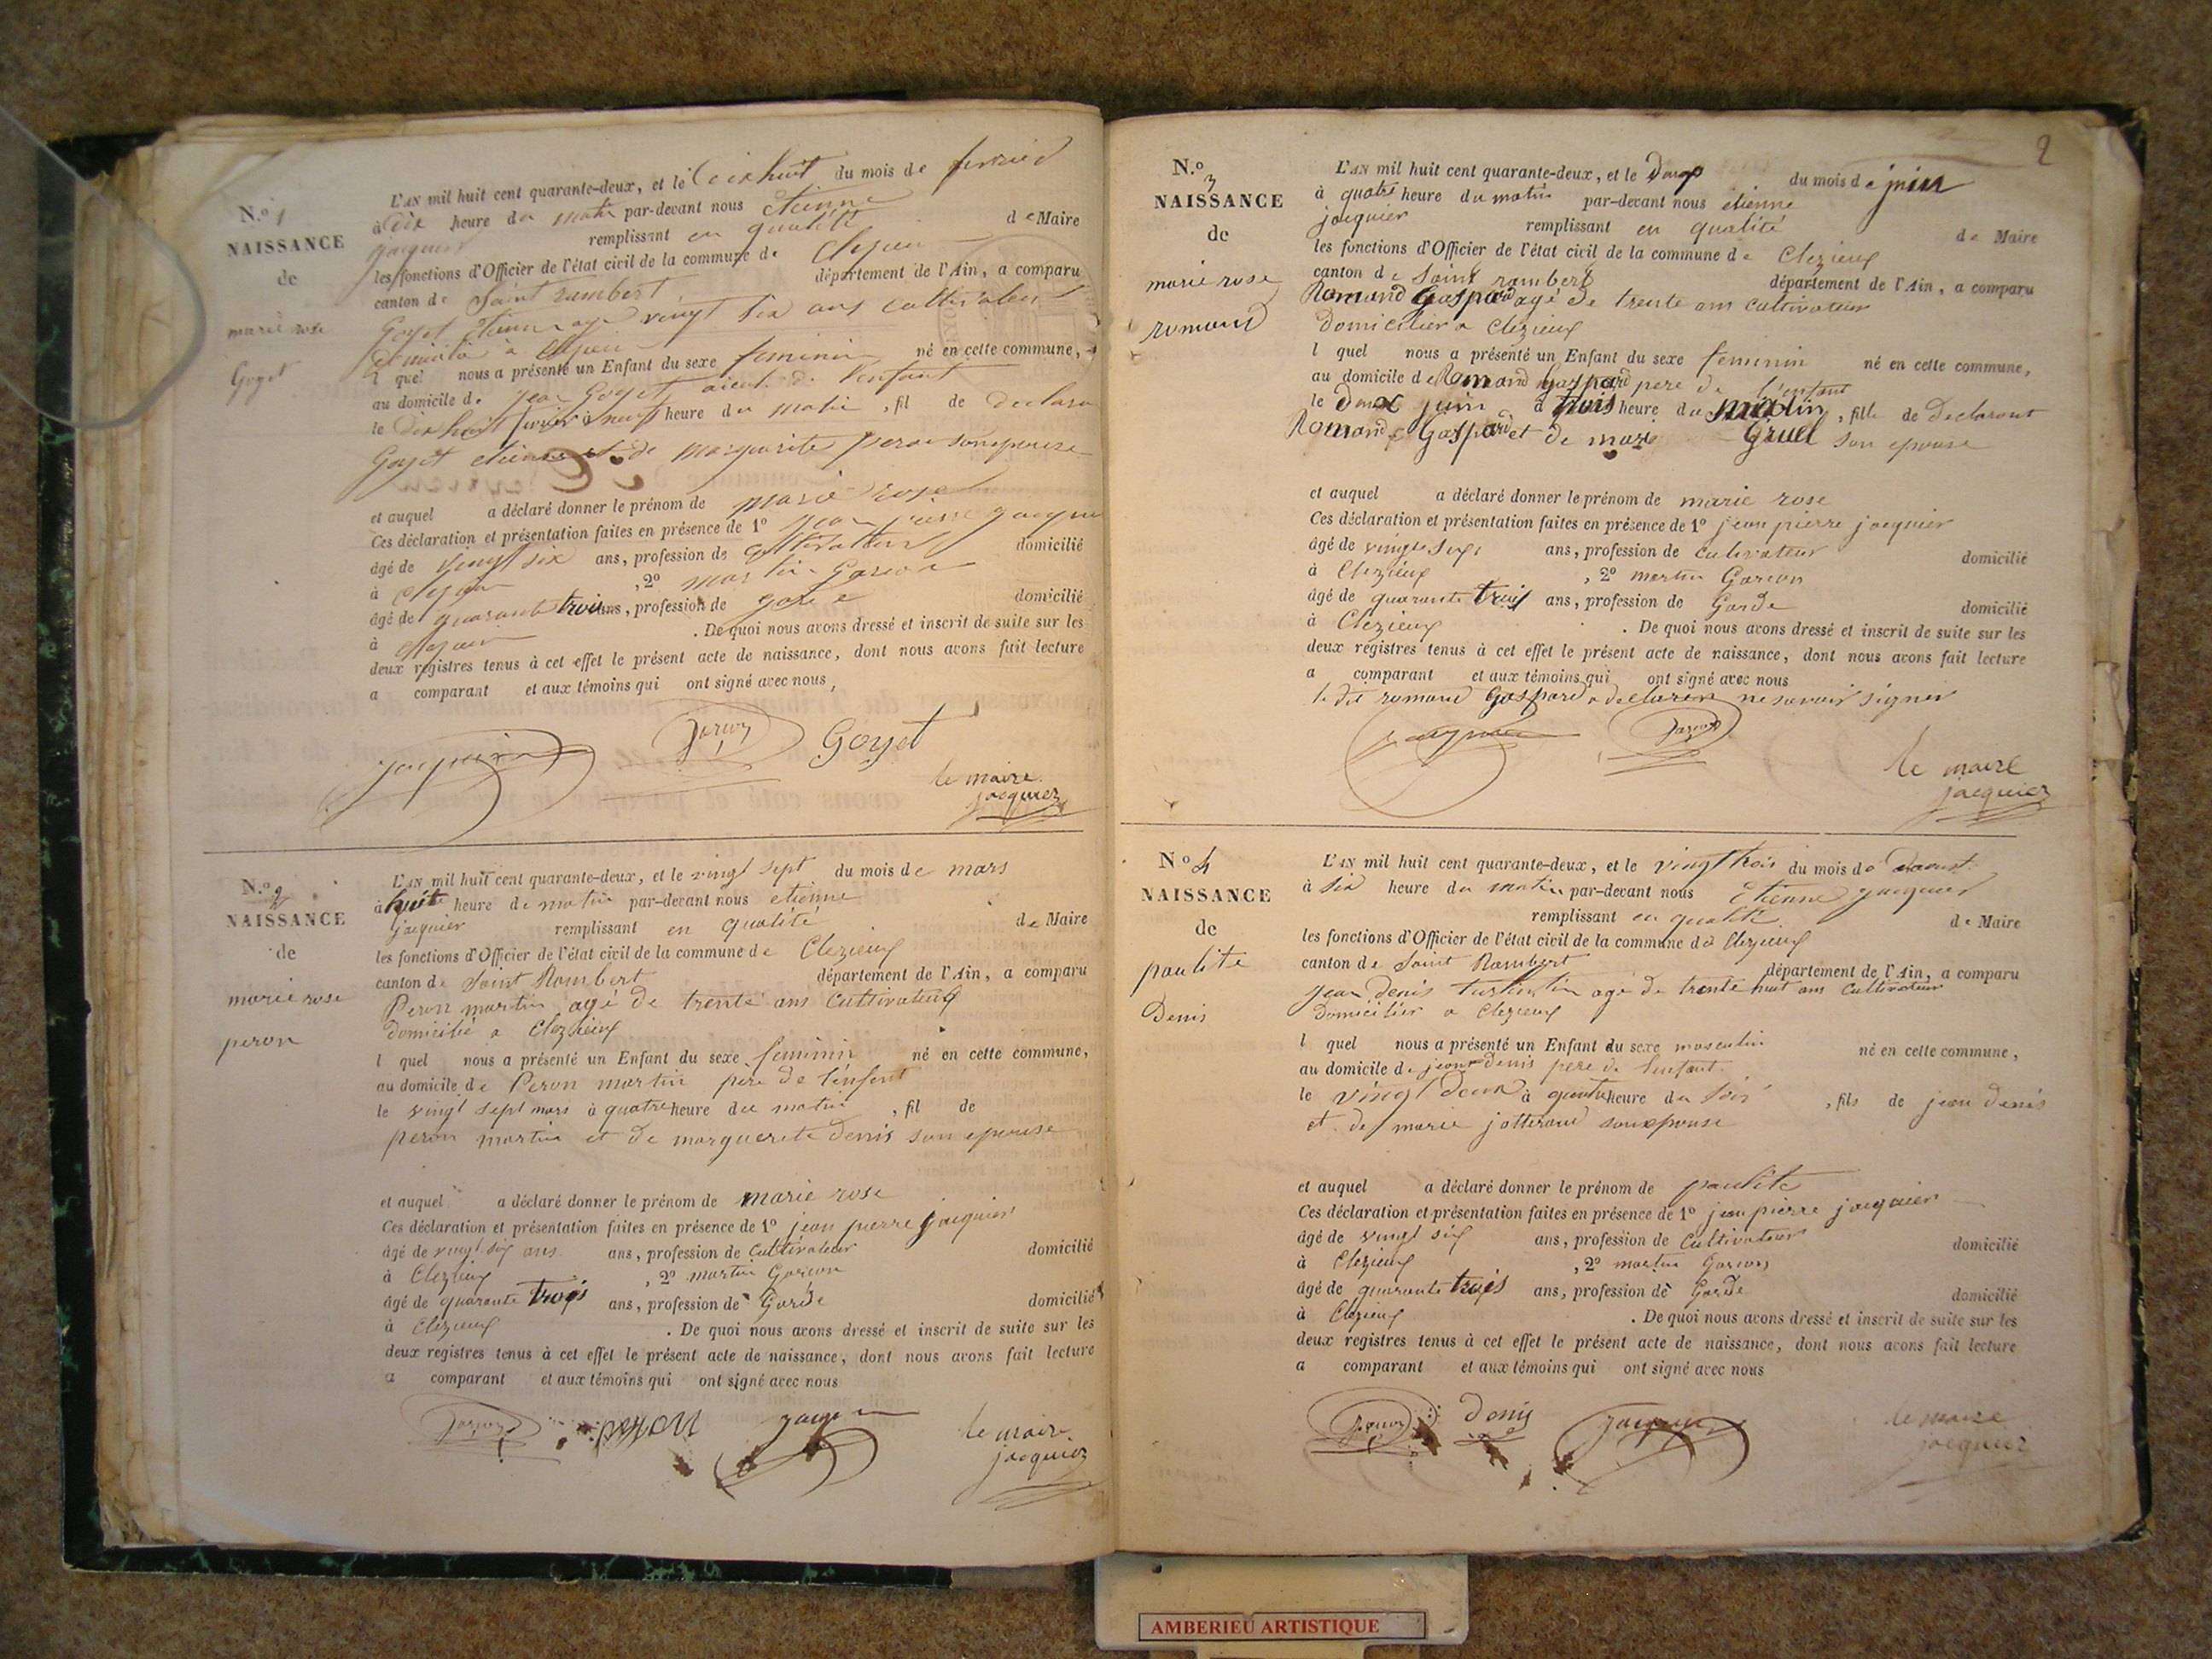 N.º 1
NAISSANCE
de
marie rose
Goyet
L'AN mil huit cent quarante-deux, et le dix huit du mois de fevrier
à dix heure du matin par-devant nous etienne
jacquier remplissant en qualité de Maire
les fonctions d'Officier de l'état civil de la commune de
canton de Saint rambert département de l'Ain, a comparu
Goyet etienne age vingt six ans cultivateur
domicilié à
l quel nous a présenté un Enfant du sexe feminin né en cette commune,
au domicile de jean Goyet aieul de l'enfant
le dix huit fevrier à neuf heure du matin , fil de declara
Goyet etienne et de marguerite peron son epouse
et auquel a déclaré donner le prénom de marie rose
Ces déclaration et présentation faites en présence de 1º jean pierre jacquier
âgé de vingt six ans, profession de cultivateur domicilié
à , 2º martin Garcon
âgé de quarante trois ans, profession de garde domicilié
à . De quoi nous avons dressé et inscrit de suite sur les
deux registres tenus à cet effet le présent acte de naissance, dont nous avons fait lecture
a comparant et aux témoins qui ont signé avec nous,
Goyet
le maire
jacquier
N.º 2
NAISSANCE
de
marie rose
peron
L'AN mil huit cent quarante-deux, et le vingt sept du mois de mars
à huit heure de matin par-devant nous etienne
jacquier remplissant en qualité de Maire
les fonctions d'Officier de l'état civil de la commune de Clezieux
canton de Saint Rambert département de l'Ain, a comparu
Peron martin agé de trente ans cultivateur
domicilié a Clezieux
l quel nous a présenté un Enfant du sexe feminin né en cette commune,
au domicile de Peron martin père de l'enfent
le vingt sept mars à quatre heure du matin , fil de
peron martin et de marguerite denis son epouse
et auquel a déclaré donner le prénom de marie rose
Ces déclaration et présentation faites en présence de 1º jean pierre jacquier
âgé de vingt six ans ans, profession de cultivateur domicilié
à Clezieux , 2º martin Garcon
âgé de quarante trois ans, profession de Garde domicilié
à Clezieux . De quoi nous avons dressé et inscrit de suite sur les
deux registres tenus à cet effet le présent acte de naissance, dont nous avons fait lecture
a comparant et aux témoins qui ont signé avec nous
le maire
jacquier
2
N.º 3
NAISSANCE
de
marie rose
romand
L'AN mil huit cent quarante-deux, et le douze du mois de juin
à quatre heure du matin par-devant nous etienne
jacquier remplissant en qualité de Maire
les fonctions d'Officier de l'état civil de la commune de Clezieux
canton de Saint rambert département de l'Ain, a comparu
Romand Gaspard agé de trente ans cultivateur
domicilier a Clezieux
l quel nous a présenté un Enfant du sexe feminin né en cette commune,
au domicile de Romand Gaspard pere de l'enfant
le douze juin à trois heure du matin , fille de declarant
Romand Gaspard et de marie Gruel son epouse
et auquel a déclaré donner le prénom de marie rose
Ces déclaration et présentation faites en présence de 1º jean pierre jacquier
âgé de vingt six ans, profession de cultivateur domicilié
à Clezieux , 2º martin Garcon
âgé de quarante trois ans, profession de Garde domicilié
à Clezieux . De quoi nous avons dressé et inscrit de suite sur les
deux registres tenus à cet effet le présent acte de naissance, dont nous avons fait lecture
a comparant et aux témoins qui ont signé avec nous
le dit romand Gaspard a declarer ne savoir signer
le maire
jacquier
N.º 4
NAISSANCE
de
paulite
Denis
L'AN mil huit cent quarante-deux, et le vingt trois du mois de daoust
à six heure du matin par-devant nous Etienne jacquier
remplissant en qualité de Maire
les fonctions d'Officier de l'état civil de la commune de Clezieux
canton de Saint Rambert département de l'Ain, a comparu
jean denis agé de trente huit ans cultivateur
domicilier a Clezieux
l quel nous a présenté un Enfant du sexe masculin né en cette commune,
au domicile de jean denis pere de lenfant
le vingt deux à quatre heure du soir , fils de jean denis
et de marie jotterand son epouse
et auquel a déclaré donner le prénom de paulite
Ces déclaration et présentation faites en présence de 1º jean pierre jacquier
âgé de vingt six ans, profession de cultivateur domicilié
à Clezieux , 2º martin Garcon
âgé de quarante trois ans, profession de Garde domicilié
à Clezieux . De quoi nous avons dressé et inscrit de suite sur les
deux registres tenus à cet effet le présent acte de naissance, dont nous avons fait lecture
a comparant et aux témoins qui ont signé avec nous
denis
le maire
jacquier
AMBERIEU ARTISTIQUE